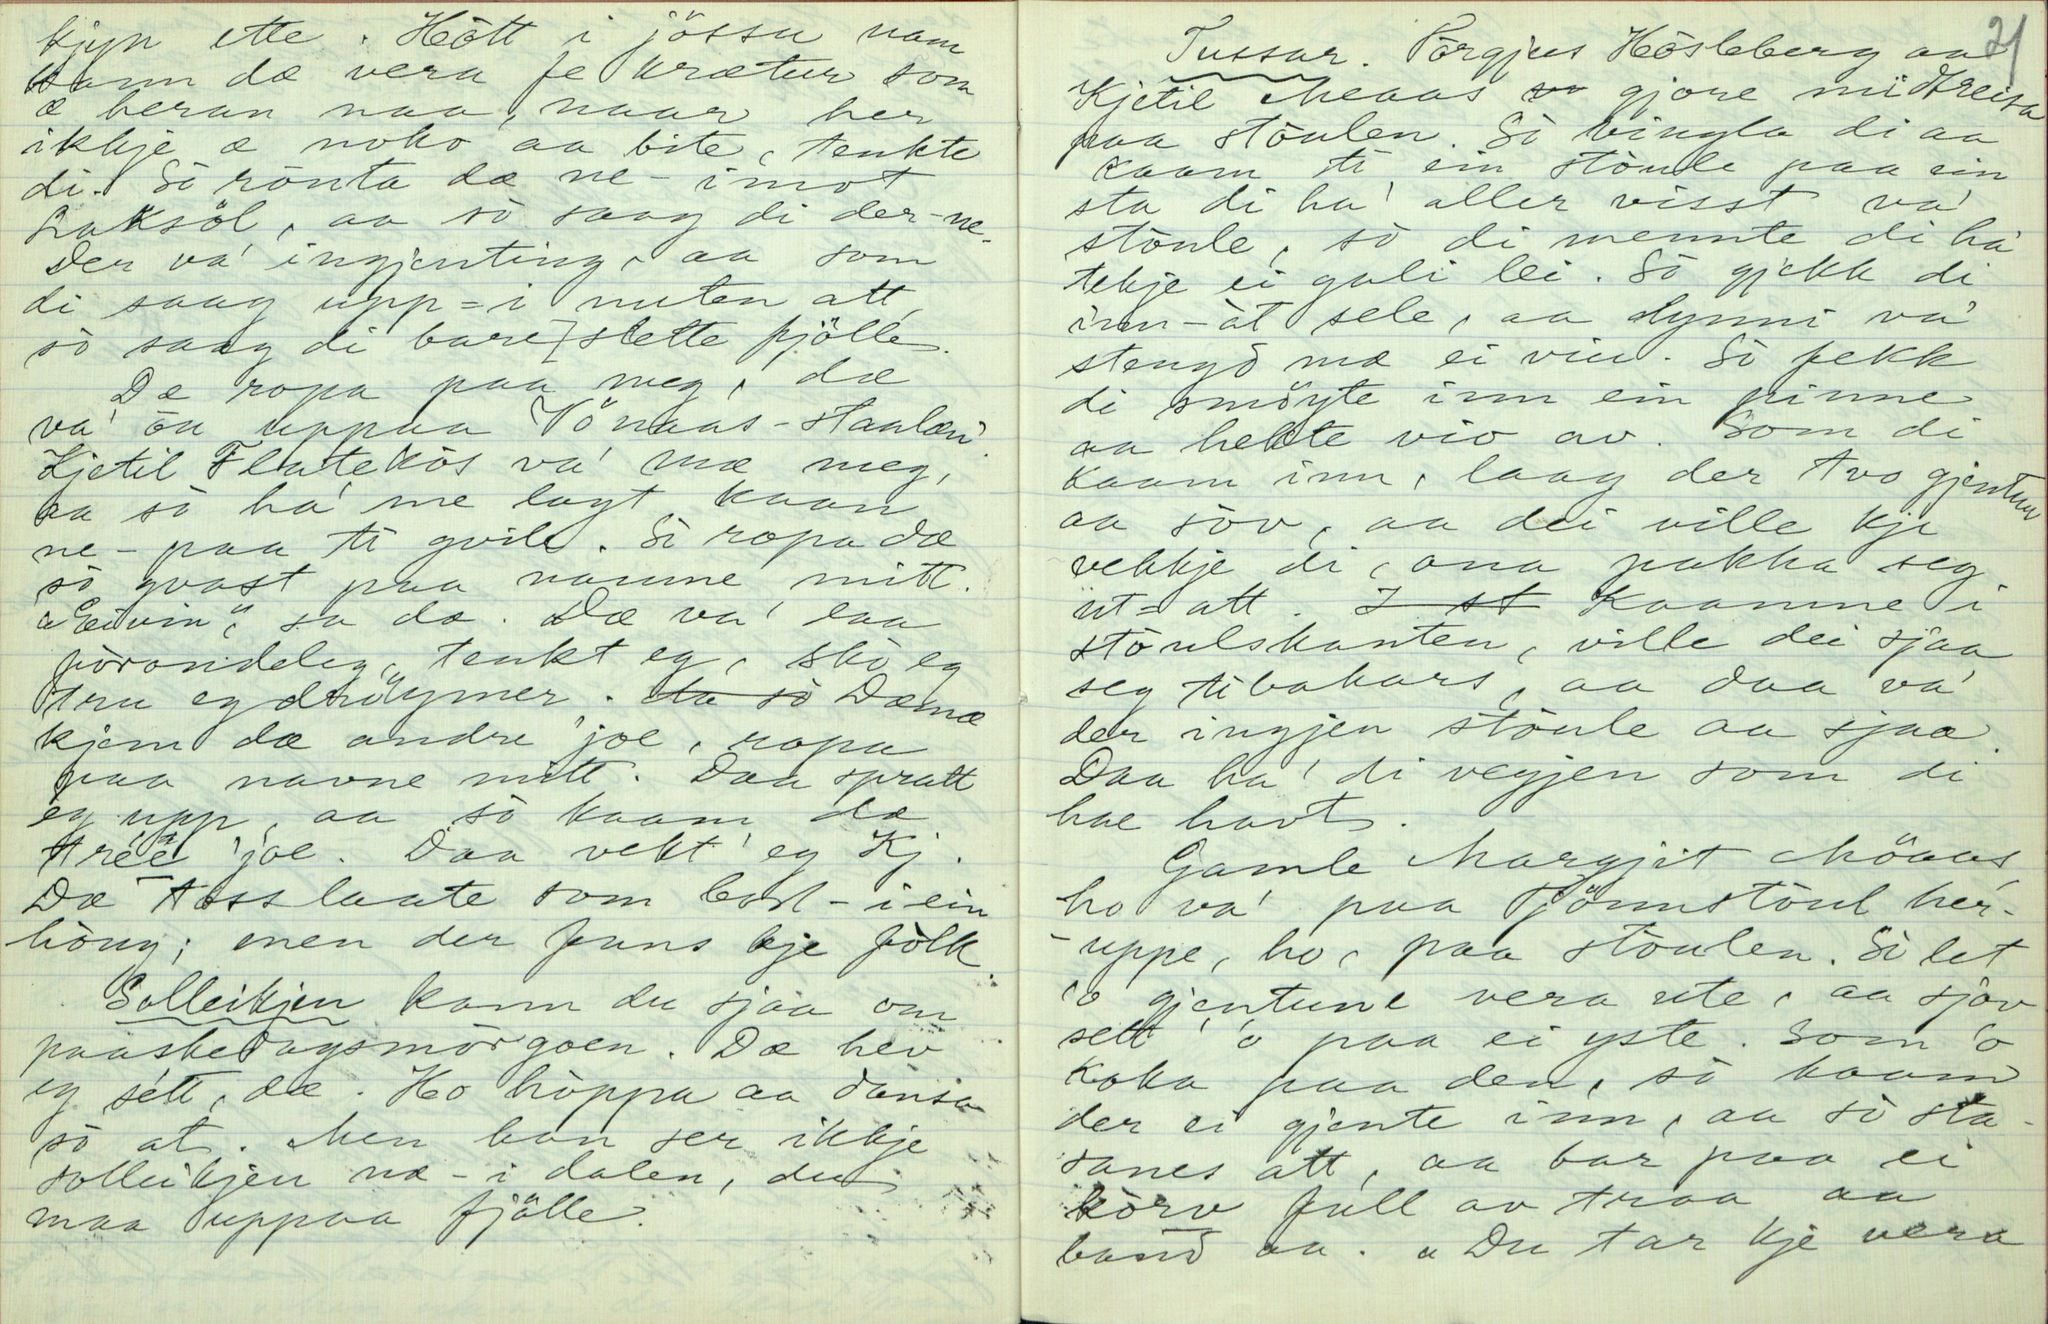 kjyn ette. Hòtt i jössu nam
kann dæ vera fe krætur som
æ heran naa, naar her
ikkje æ noko aa bite, tenkte
di. Sò rònta dæ ne-imot
Laksöl, aa sò saag di der-ne.
Der va' ingjenting, aa som
di saag upp-i nuten att,
sò saag di bare slette fjölle.
Dæ ropa paa meg, dæ
va' òn uppaa Vönaas-staulæn.
Kjetil Flatekòs va' mæ meg,
aa sò ha' me lagt kaan
ne-paa ti gvile. Sò ropa dæ
sò gvast paa namne mitt.
"Eivin", sa dæ. Dæ va' laa
förondeleg, tenkt eg, skò eg
tru eg dröymer. Dæmæ
kjem dæ andre 'joe, ropa
paa navne mitt. Daa spratt
eg upp, aa sò kaam dæ
tréè 'joe. Daa vekt' eg Kj.
Dæ tosslaate som best-i ein
hòug; men der funs kje fòlk.
Solleikjen kann du sjaa om
paaskedagsmòrgoen. Dæ hev
eg sétt, dæ. Ho hòppa aa dansa
sò at. Men han ser ikkje
solleikjen næ-i dalen, du
maa uppaa fjölle.
21
Tussar. Pòrgjus Hòsleberg aa
Kjetil Meaas gjore miðtreisa
paa stòulen. Sò vingla di aa
kaam ti ein stòule paa ein
sta di ha' aller visst va'
stòule, sò di mennte di ha'
tekje ei gali lei. Sò gjekk di
inn-åt sele, aa dynni va'
stengd mæ ei viu. Sò fekk
di smöyte inn ein pinne
aa hekte vio av. Som di
kaam inn, laag der tvo gjentur
aa sòv, aa dei ville kje
vekkje di, ona pakka seg
ut-att. I st Kaamne i
stòulskanten, ville dei sjaa
seg tibakars, aa daa va'
der ingjen stòule aa sjaa.
Daa ha' di vegjen som di
hae havt.
Gamle Margjit Möaas,
ho va' paa Tjönnstòul her-
-uppe, ho, paa stòulen. Sò let
'o gjentune vera ute, aa sjòv
sett 'o paa ei yste. Som 'o
koka paa den, sò kaam
der ei gjente inn, aa sò sta-
sanes att, aa bar paa ei
kòrv full av traa aa
band aa. "Du tar kje vera